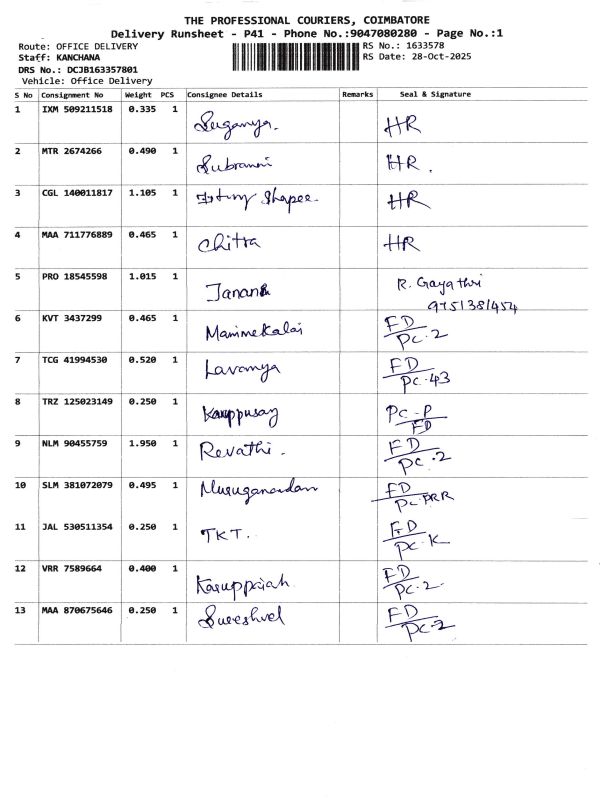 THE PROFESSIONAL COURIERS, COIMBATORE
Delivery Runsheet - P41 - Phone No.:9047080280 - Page No.:1
Route: OFFICE DELIVERY RS No.: 1633578
Staff: KANCHANA RS Date: 28-Oct-2025
DRS No.: DCJB163357801
Vehicle: Office Delivery
S No Consignment No Weight PCS Consignee Details Remarks Seal & Signature
1 IXM 509211518 0.335 1 Suganya. HR
2 MTR 2674266 0.490 1 Subramani HR.
3 CGL 140011817 1.105 1 Shapee. HR
4 MAA 711776889 0.465 1 Chitra HR
5 PRO 18545598 1.015 1 Janani R. Gayathri
9751381454
6 KVT 3437299 0.465 1 Manimekalai FD
PC-2
7 TCG 41994530 0.520 1 Lavanya FD
PC-43
8 TRZ 125023149 0.250 1 Karuppusay PC-P
FD
9 NLM 90455759 1.950 1 Revathi. FD
PC-2
10 SLM 381072079 0.495 1 Muruganandam FD
PC-PRR
11 JAL 530511354 0.250 1 TKT. FD
PC-K
12 VRR 7589664 0.400 1 Karuppaiah FD
PC-2.
13 MAA 870675646 0.250 1 FD
PC-2